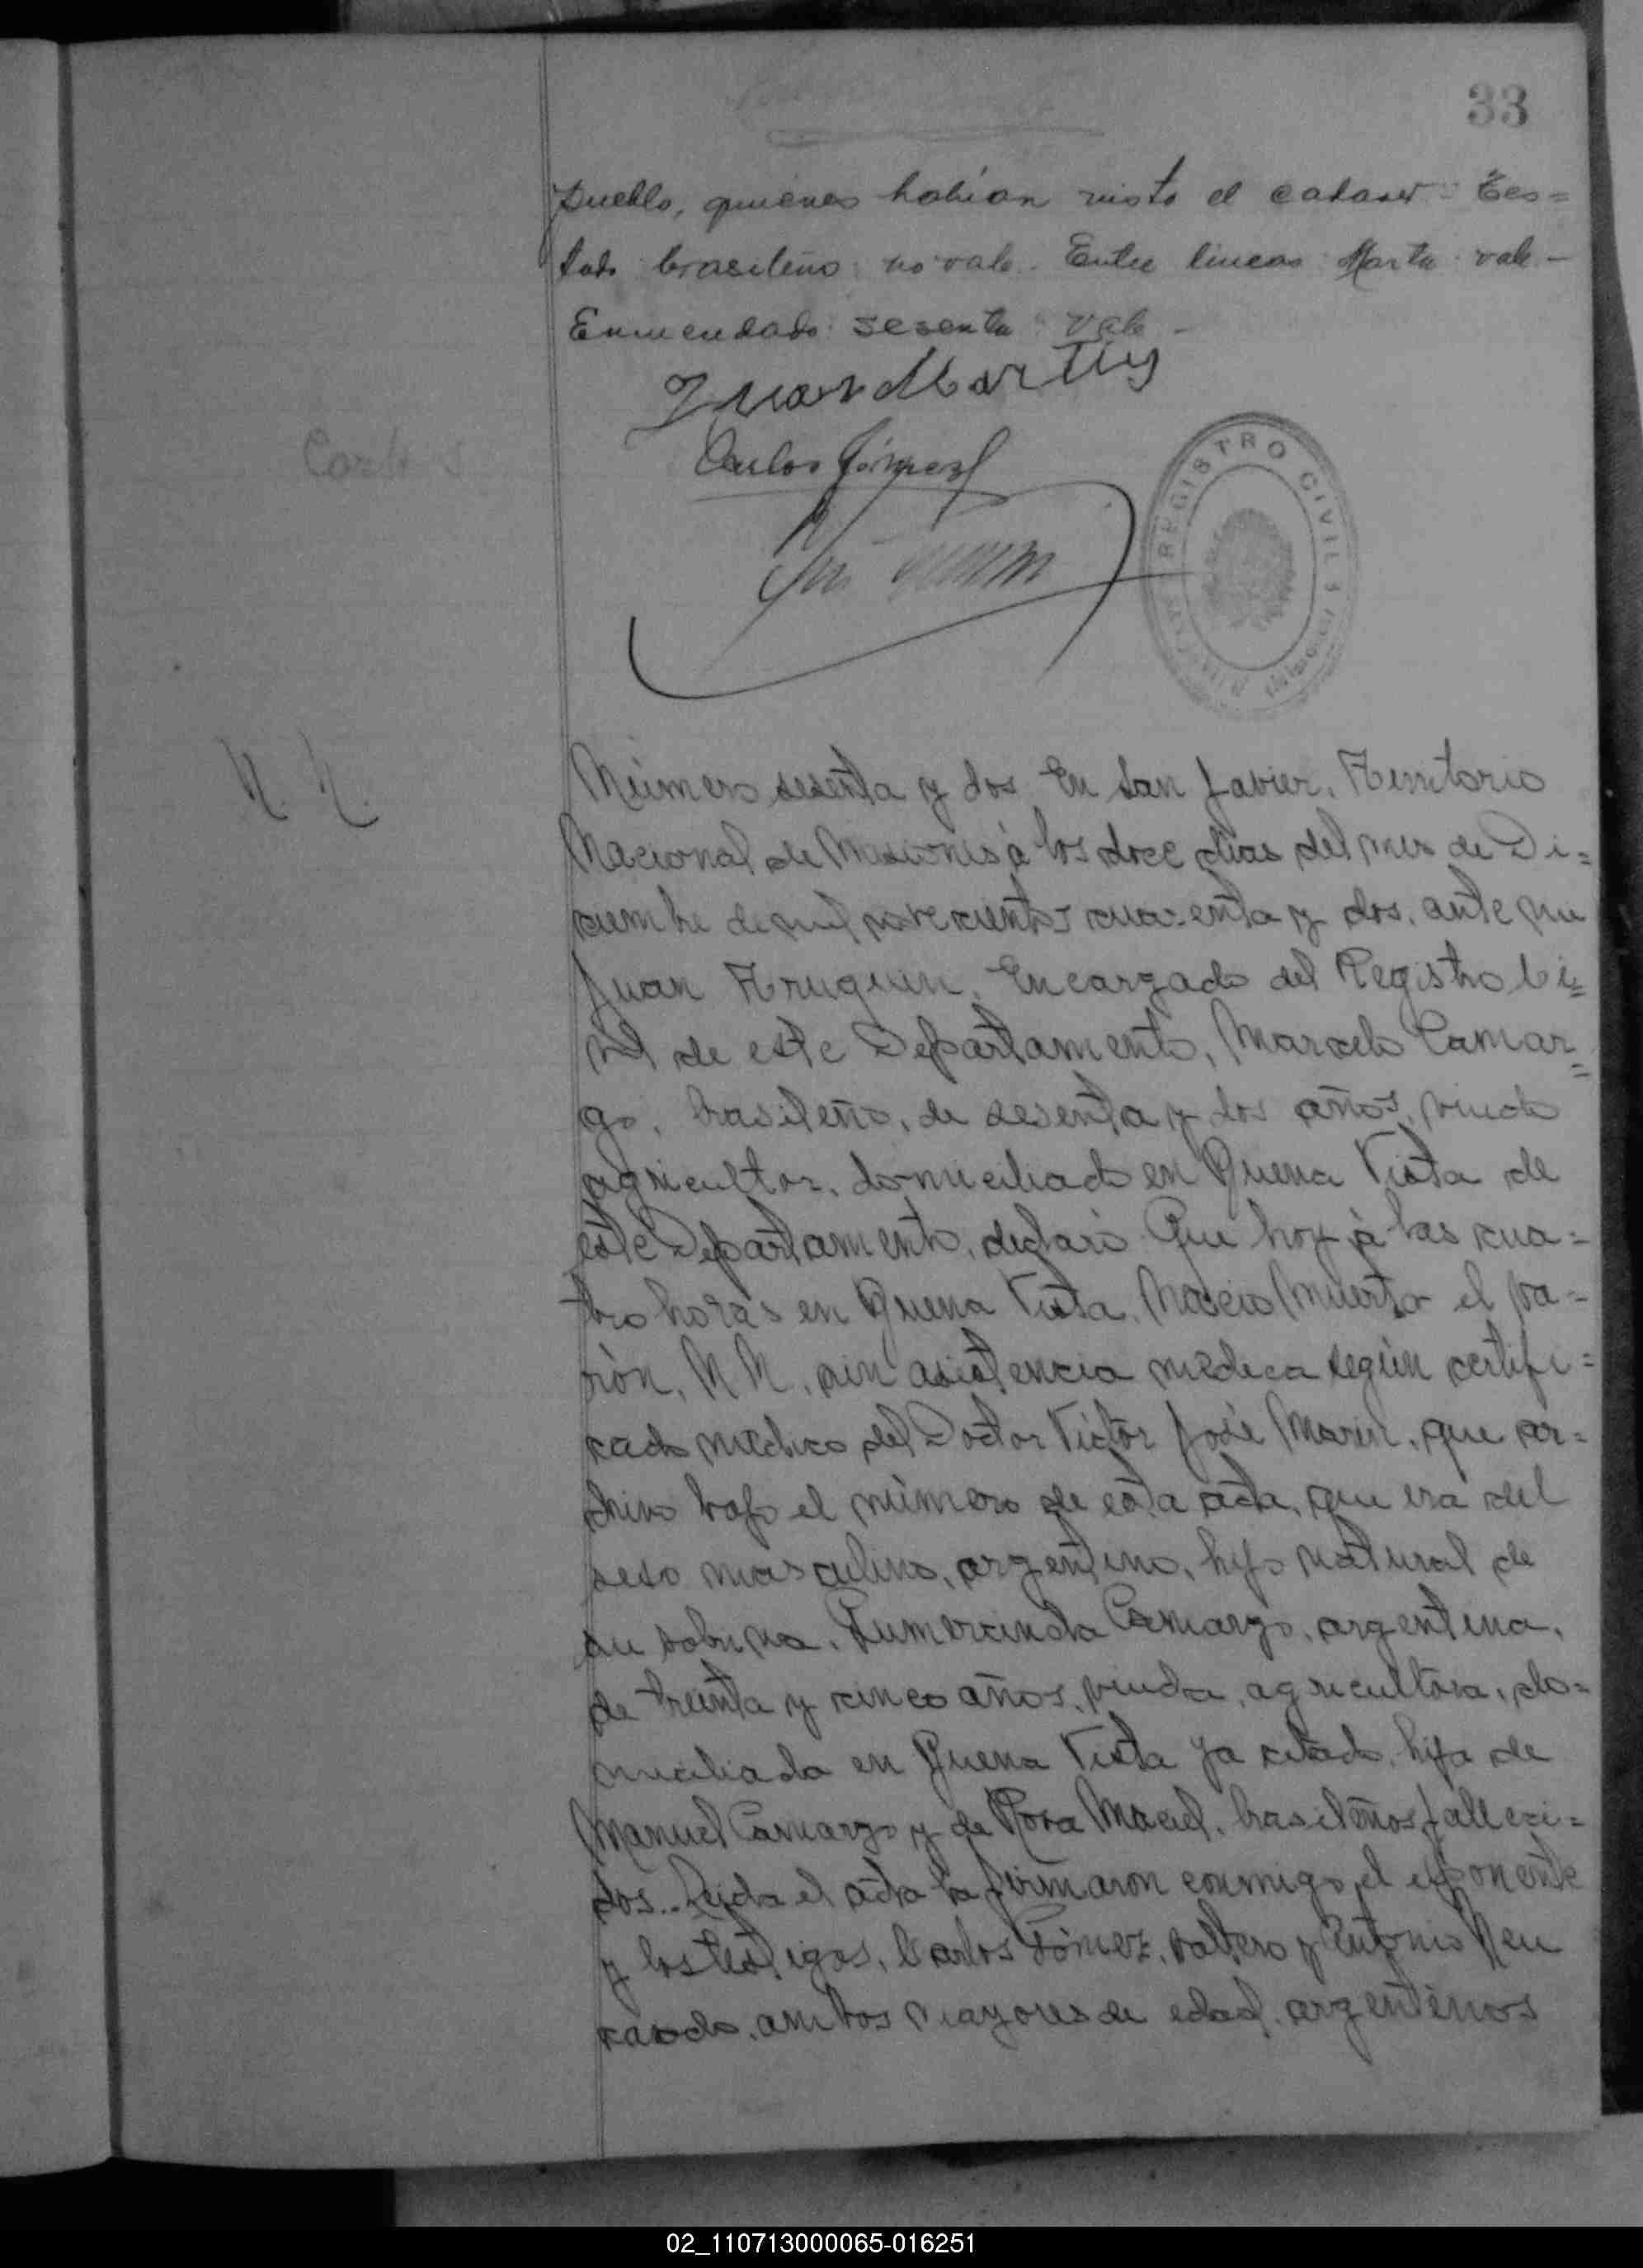 33
pueblo, quienes habían visto el cadaver. Tes=
tado: brasileño: no vale. Entre lineas: Marta: vale.-
Enmendado: sesenta: vale.-
Juan Martins
Carlos Gómez
REGISTRO CIVIL
N. N.
Número sesenta y dos. En San Javier, Territorio
Nacional de Misiones á los doce dias del mes de Di=
ciembre de mil novecientos cuarenta y dos, ante mi
Juan Encargado del Registro Ci=
vil de este Departamento, Marcelo Camar=
go, brasileño, de sesenta y dos años, viudo
agricultor, domiciliado en Buena Vista de
este Departamento, declaró: Que hoy á las cua=
tro horas en Buena Vista, Nació muerto el va=
rón, N N, sin asistencia médica según certifi=
cado médico del Doctor Victor José Marin, que ar=
chivo bajo el número de esta acta, que era del
sexo masculino, argentino, hijo natural de
su sobrina, Gumercinda Camargo, argentina,
de treinta y cinco años, viuda, agricultora, do=
miciliada en Buena Vista ya citado, hija de
Manuel Camargo y de Rosa Maciel, brasileños, falleci=
dos.. Leida el acta la firmaron conmigo, el exponente
y los testigos, Carlos Gómez, soltero y Antonio Neu
casado, ambos mayores de edad, argentinos
02_110713000065-016251